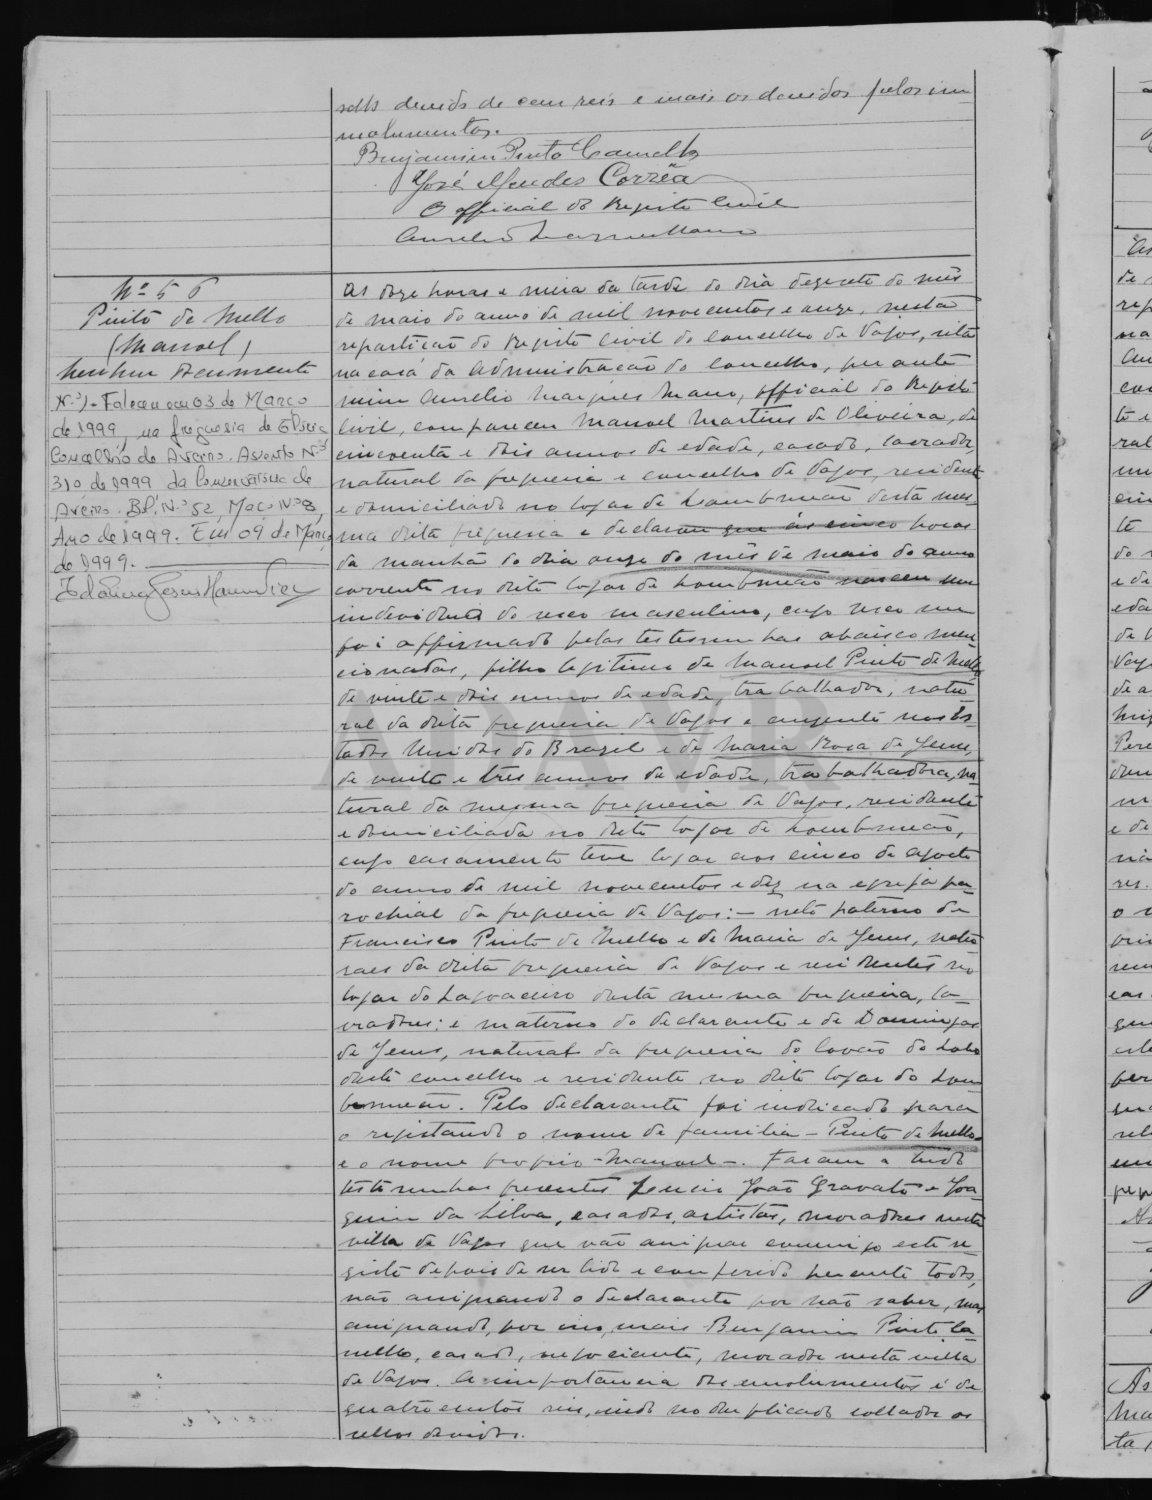 sello devido de cem reis e mais os devidos pelos imo
molumentos.
Benjamim Pinto Camello
José Mendes Corrêa
O official do Registo Civil
Aurelio Marques Mano
Nº 56
Pinto de Mello
(Manoel)
Nenhum documento
N.º 1 - Faleceu em 03 de Março
de 1999, na freguesia de Glória
Concelho de Aveiro. Assento Nº
310 de 1999 da Conservatória de
Aveiro. Bol. N.º 52, Maço N.º 8,
Ano de 1999. Em 09 de Março
de 1999.
As doze horas e meia da tarde do dia dezesete do mês
de maio do anno de mil novecentos e onze, nesta
repartição do Registo Civil do concelho de Vagos, sita
na casa da Administração do Concelho, perante
mim Aurelio Marques Mano, official do Registo
Civil, compareceu Manoel Martins de Oliveira, de
cincoenta e dois annos de edade, casado, lavrador,
natural da freguesia e concelho de Vagos, residente
e domiciliado no logar de Lombomeão desta mes-
ma dita freguesia e declarou que ás cinco horas
da manhã do dia onze do mês de maio do anno
corrente no dito logar de Lombomeão nasceu um
individuo do sexo masculino, cujo sexo me
foi affirmado pelas testemunhas abaixo men
cionadas, filho legitimo de Manoel Pinto de Mello
de vinte e dois annos de edade, trabalhador, natu
ral da dita freguesia de Vagos e ausente nos Es-
tados Unidos do Brazil e de Maria Rosa de Jesus,
de vinte e três annos de edade, trabalhadora, na
tural da mesma freguesia de Vagos, residente
e domiciliada no dito logar de Lombomeão,
cujo casamento teve logar aos cinco de agosto
do anno de mil novecentos e dez na egreja pa-
rochial da freguesia de Vagos: - neto paterno de
Francisco Pinto de Mello e de Maria de Jesus, natu
raes da dita freguesia de Vagos e residentes no
logar do Lagoaceiro desta mesma freguesia, la-
vradores; e materno do declarante e de Domingas
de Jesus, natural da freguesia do Covão do Lobo
deste concelho e residente no dito logar do Lom
bomeão. Pelo declarante foi indicado para
o registando o nome de familia - Pinto de Mello -
e o nome proprio - Manoel -. Foram a tudo
testemunhas presentes João Gravato e Joa-
quim da Silva, casados, artistas, moradores nesta
villa de Vagos que vão assignar commigo este re-
gisto depois de ser lido e conferido perante todos,
não assignando o declarante por não saber, mas
assignando, por isso, mais Benjamim Pinto Ca-
mello, casado, negociante, morador nesta villa
de Vagos. A importancia dos emolumentos é de
quatrocentos reis, sendo no duplicado collados os
sellos devidos.